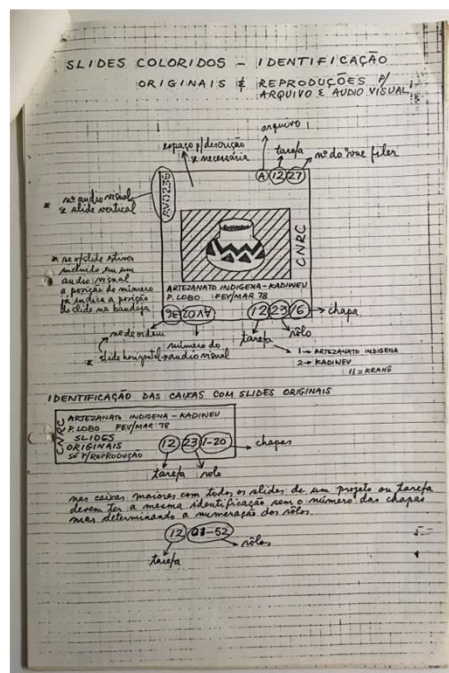 SLIDES COLORIDOS – IDENTIFICAÇÃO
ORIGINAIS & REPRODUÇÕES P/
ARQUIVO E AUDIO VISUAL
arquivo
espaço p/ descrição
se necessária
tarefa
nº do
A 12 27
* nº audio visual
se slide vertical
CNRC
* se o slide estiver
incluido em um
audio visual
a posição do número
já indica a posição
do slide na bandeja
ARTEZANATO INDIGENA – KADINEU
P. LOBO FEV/MAR 78
12 23 6
chapa
nº de ordem
número do
audio visual
* slide horizontal
tarefa
rôlo
1 → ARTEZANATO INDIGENA
2 → KADINEU
11 = KRAHÔ
IDENTIFICAÇÃO DAS CAIXAS COM SLIDES ORIGINAIS
CNRC
ARTEZANATO INDIGENA – KADINEU
P. LOBO FEV/MAR 78
SLIDES
ORIGINAIS
SÓ P/ REPRODUÇÃO
12 23 1-20
chapas
tarefa rolo
nas caixas maiores com todos os slides de um projeto ou tarefa
devem ter a mesma identificação sem o número das chapas
mas determinando a numeração dos rôlos.
12 01-52
rôlos
tarefa